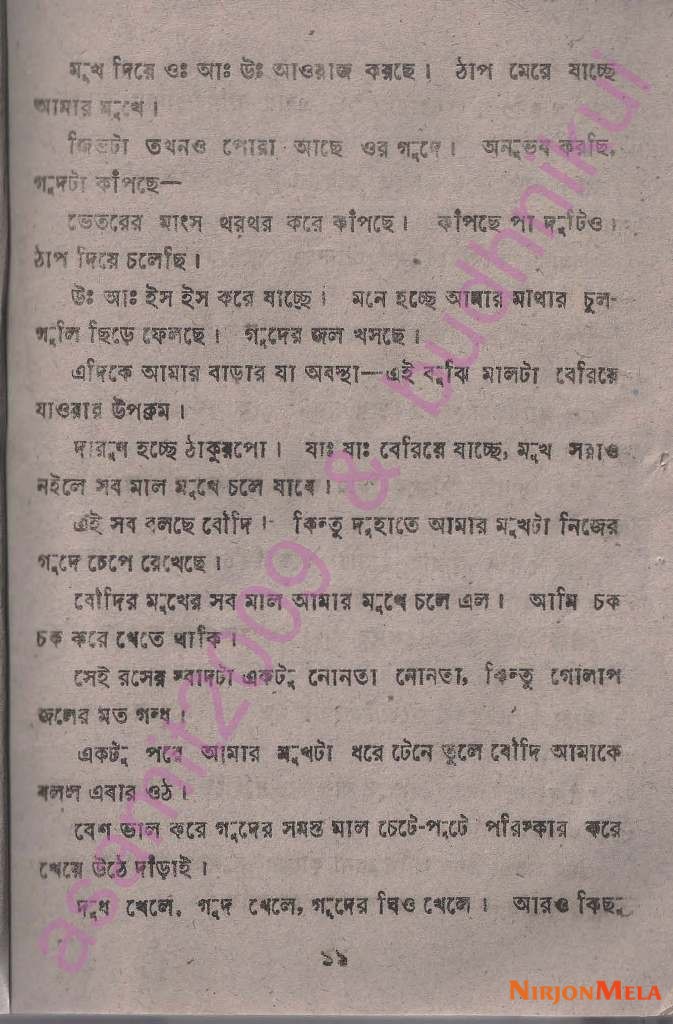 মুখ দিয়ে ওঃ আঃ উঃ আওয়াজ করছে। ঠাপ মেরে যাচ্ছে
আমার মুখে।
জিভটা তখনও পোরা আছে ওর গুদে। অনুভব করছি,
গুদটা কাঁপছে—
ভেতরের মাংস থরথর করে কাঁপছে। কাঁপছে পা দুটিও।
ঠাপ দিয়ে চলেছি।
উঃ আঃ ইস ইস করে যাচ্ছে। মনে হচ্ছে আমার মাথার চুল-
গুলি ছিড়ে ফেলছে। গুদের জল খসছে।
এদিকে আমার বাড়ার যা অবস্থা—এই বুঝি মালটা বেরিয়ে
যাওয়ার উপক্রম।
দারুণ হচ্ছে ঠাকুরপো। যাঃ যাঃ বেরিয়ে যাচ্ছে, মুখ সরাও
নইলে সব মাল মুখে চলে যাবে।
এই সব বলছে বৌদি। কিন্তু দুহাতে আমার মুখটা নিজের
গুদে চেপে রেখেছে।
বৌদির মুখের সব মাল আমার মুখে চলে এল। আমি চক
চক করে খেতে থাকি।
সেই রসের স্বাদটা একটু নোনতা নোনতা, কিন্তু গোলাপ
জলের মত গন্ধ।
একটু পরে আমার মুখটা ধরে টেনে তুলে বৌদি আমাকে
বলল এবার ওঠ।
বেশ ভাল করে গুদের সমস্ত মাল চেটে-পুটে পরিষ্কার করে
খেয়ে উঠে দাঁড়াই।
দুধ খেলে, গুদ খেলে, গুদের ঘিও খেলে। আরও কিছু
১৯
asamit2009 & budhnirui
NIRJONMELA